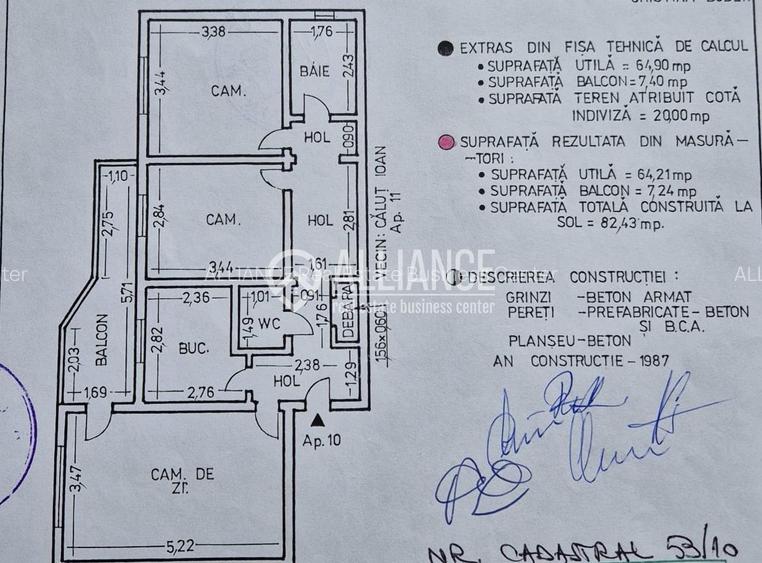 3,38
1,76
3,44
CAM.
BAIE
2,43
HOL
0,90
1,10
2,75
2,84
CAM.
3,44
HOL
2,81
1,61
VECIN: CĂLUȚ IOAN
Ap. 11
5,71
BALCON
2,03
1,69
2,36
2,82
BUC.
2,76
1,01
1,49
WC
0,91
1,76
DEBARA
1,56x0,60
2,38
HOL
1,29
Ap. 10
CAM. DE
ZI.
3,47
5,22
EXTRAS DIN FIȘA TEHNICĂ DE CALCUL
• SUPRAFAȚĂ UTILĂ = 64,90 mp
• SUPRAFAȚĂ BALCON = 7,40 mp
• SUPRAFAȚĂ TEREN ATRIBUIT COTĂ
INDIVIZĂ = 20,00 mp
SUPRAFAȚĂ REZULTATA DIN MASURĂ-
-TORI :
• SUPRAFAȚĂ UTILĂ = 64,21 mp
• SUPRAFAȚĂ BALCON = 7,24 mp
• SUPRAFAȚĂ TOTALĂ CONSTRUITĂ LA
SOL = 82,43 mp.
DESCRIEREA CONSTRUCȚIEI :
GRINZI -BETON ARMAT
PEREȚI -PREFABRICATE-BETON
ȘI B.C.A.
PLANSEU-BETON
AN CONSTRUCTIE-1987
NR. CADASTRAL 53/10
ALLIANCE
estate business center